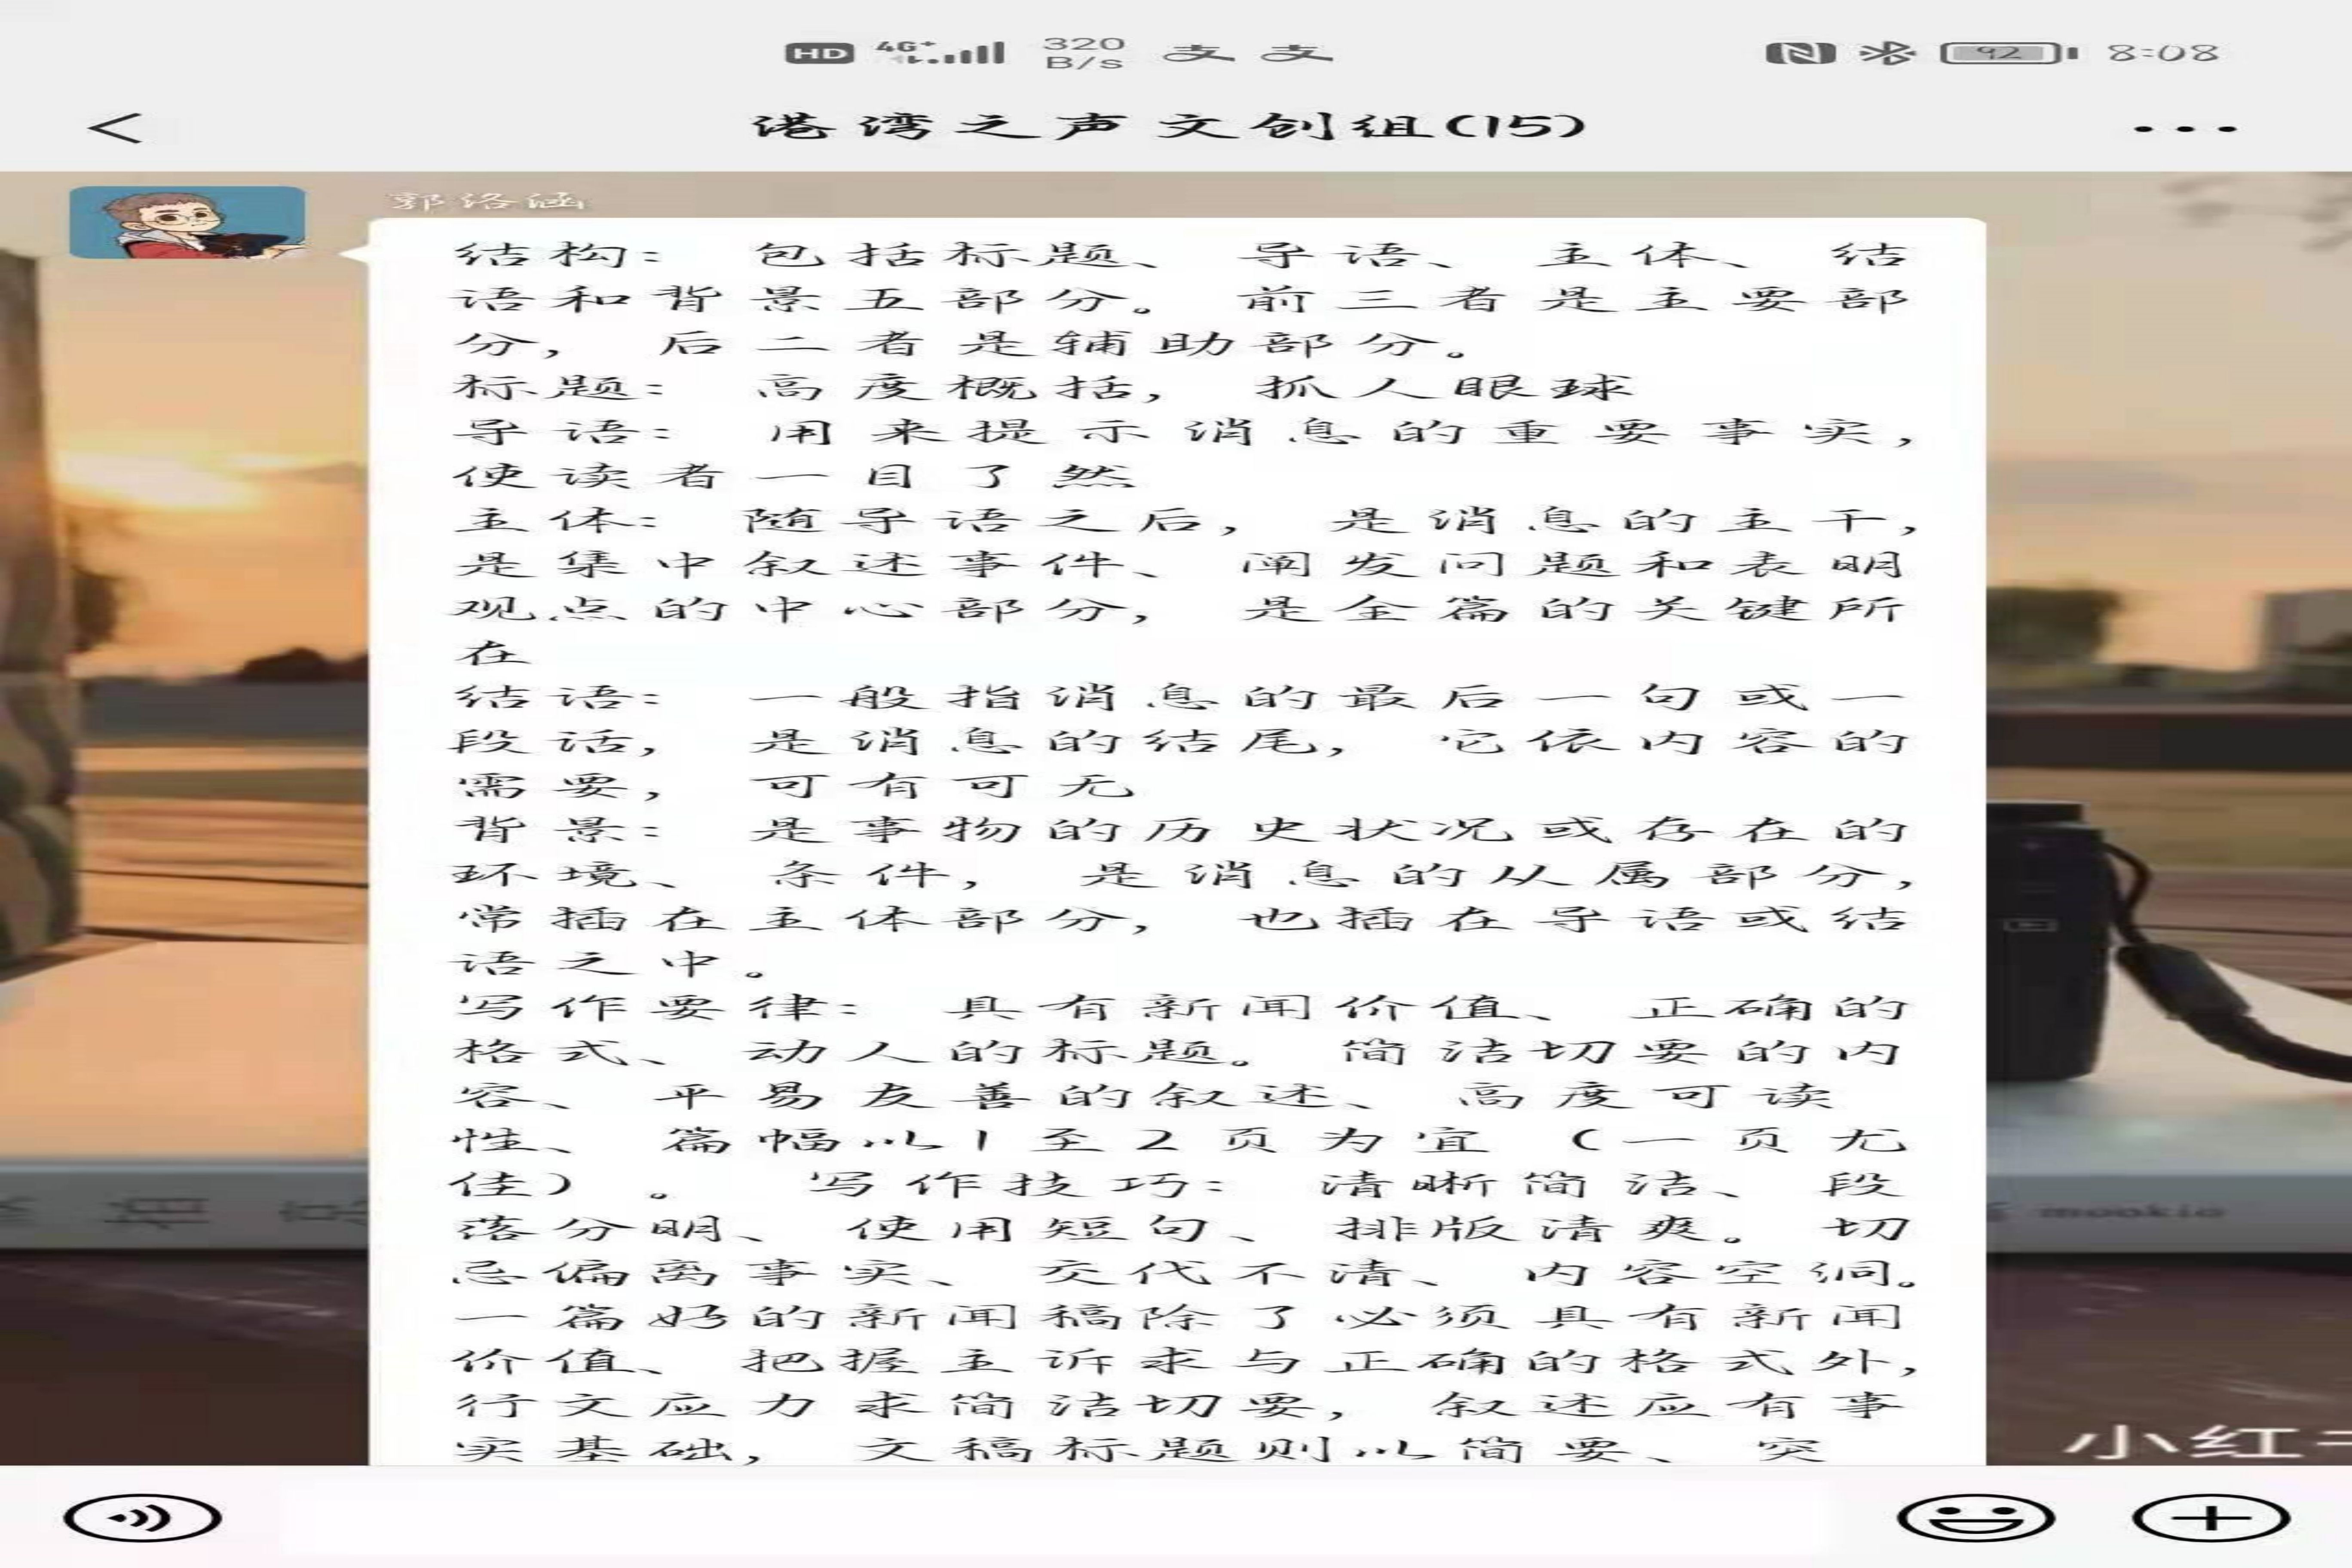 HD 4G+ 320 B/s 支 支 92 8:08
< 港湾之声文创组(15) ...
郭洛涵
结构：包括标题、导语、主体、结
语和背景五部分。前三者是主要部
分，后二者是辅助部分。
标题：高度概括，抓人眼球
导语：用来提示消息的重要事实，
使读者一目了然
主体：随导语之后，是消息的主干，
是集中叙述事件、阐发问题和表明
观点的中心部分，是全篇的关键所
在
结语：一般指消息的最后一句或一
段话，是消息的结尾，它依内容的
需要，可有可无
背景：是事物的历史状况或存在的
环境、条件，是消息的从属部分，
常插在主体部分，也插在导语或结
语之中。
写作要律：具有新闻价值、正确的
格式、动人的标题。简洁切要的内
容、平易友善的叙述、高度可读
性、篇幅以1至2页为宜（一页尤
佳）。 写作技巧：清晰简洁、段
落分明、使用短句、排版清爽。切
忌偏离事实、交代不清、内容空洞。
一篇好的新闻稿除了必须具有新闻
价值、把握主诉求与正确的格式外，
行文应力求简洁切要，叙述应有事
实基础，文稿标题则以简要、突
mookio
小红